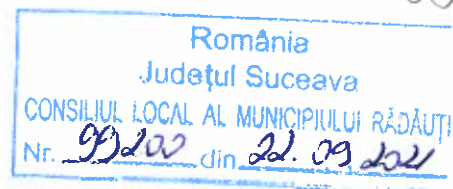 România
Județul Suceava
CONSILIUL LOCAL AL MUNICIPIULUI RĂDĂUȚI
Nr. 99200 din 22.09.2021